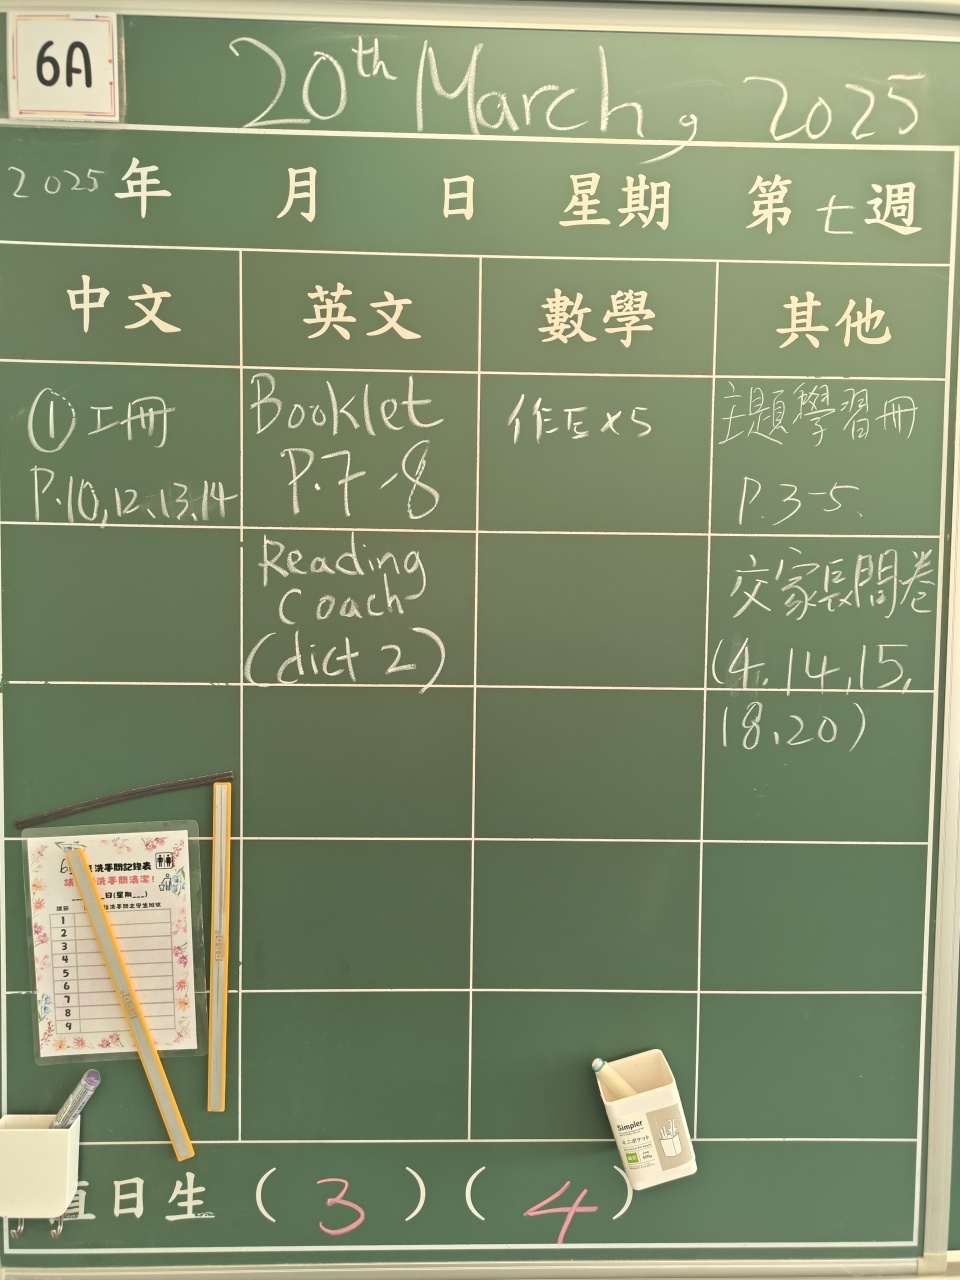 6A
20th March, 2025
2025年 月 日 星期 第七週
中文 英文 數學 其他
①工冊
P.10,12、13、14
Booklet
P.7-8
作E×5
主題學習冊
P.3-5、
Reading
Coach
(dict 2)
交家長問卷
(4、14,15,
18、20)
洗手間記錄表
洗手間清潔!
日(星期___)
1
2
3
4
5
6
7
8
9
Simpler
ミニポケット
直日生 (3)(4)